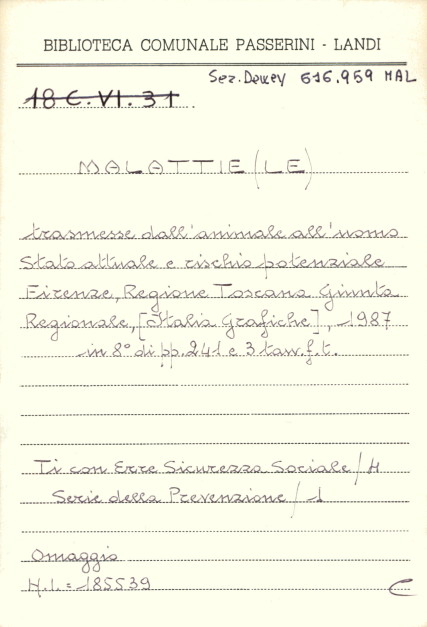 BIBLIOTECA COMUNALE PASSERINI - LANDI
Sez. Dewey 616.959 MAL
18 C.VI.31
MALATTIE (LE)
trasmesse dall'animale all'uomo
Stato attuale e rischio potenziale
Firenze, Regione Toscana Giunta
Regionale, [Italia Grafiche], 1987
in 8° di pp. 241 e 3 tav. f. t.
Ti con Erre Sicurezza Sociale / 4
Serie della Prevenzione / 1
Omaggio
N.I. = 185539
C